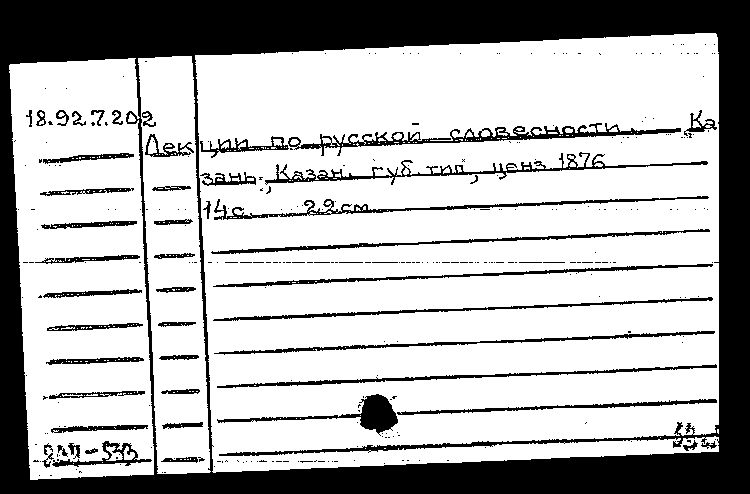 18.92.7.202
Лекции по русской словесности. Ка
зань, Казан. губ. тип, ценз 1876
14с. 22см